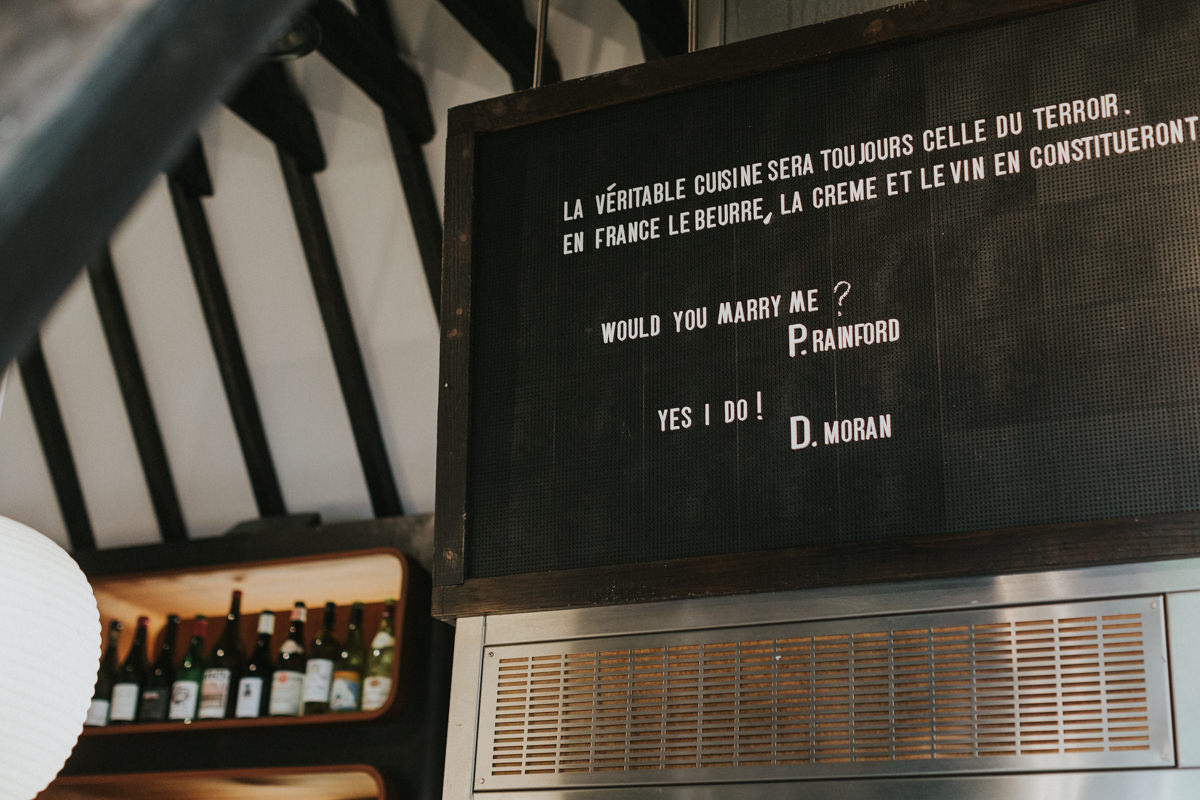 LA VÉRITABLE CUISINE SERA TOUJOURS CELLE DU TERROIR.
EN FRANCE LE BEURRE, LA CREME ET LE VIN EN CONSTITUERONT
WOULD YOU MARRY ME ?
P. RAINFORD
YES I DO !
D. MORAN